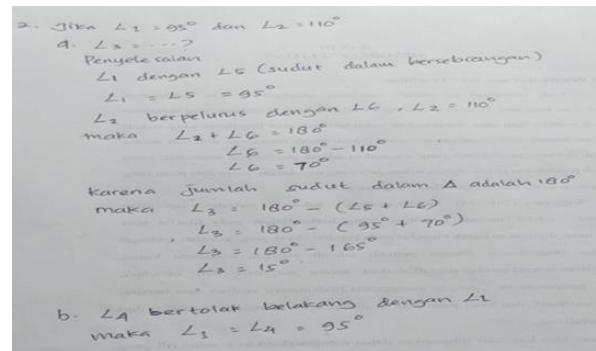 2. Jika ∠1 = 95° dan ∠2 = 110°
a. ∠3 = ....?
Penyelesaian
∠1 dengan ∠5 (sudut dalam bersebrangan)
∠1 = ∠5 = 95°
∠2 berpelurus dengan ∠6 , ∠2 = 110°
maka ∠2 + ∠6 = 180°
∠6 = 180° - 110°
∠6 = 70°
Karena jumlah sudut dalam Δ adalah 180°
maka ∠3 = 180° - (∠5 + ∠6)
∠3 = 180° - (95° + 70°)
∠3 = 180° - 165°
∠3 = 15°
b. ∠4 bertolak belakang dengan ∠1
maka ∠1 = ∠4 = 95°